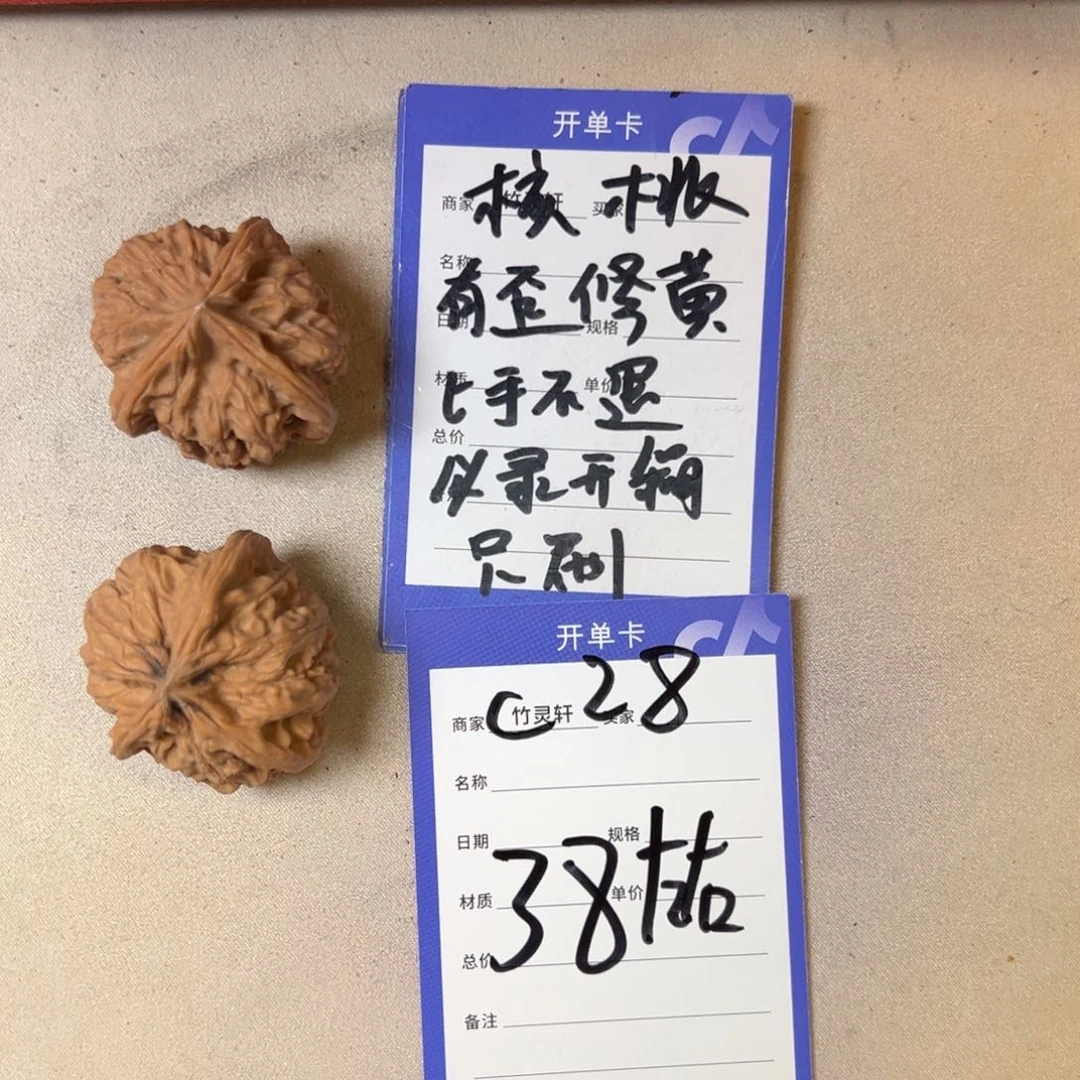 开单卡
核桃
商家 竹灵轩 买家
名称
有歪修黄
日期 规格
材质 单价
上手不退
总价
必录开箱
只刷
开单卡
C28
商家 竹灵轩 买家
名称
日期 规格
38桔
材质 单价
总价
备注